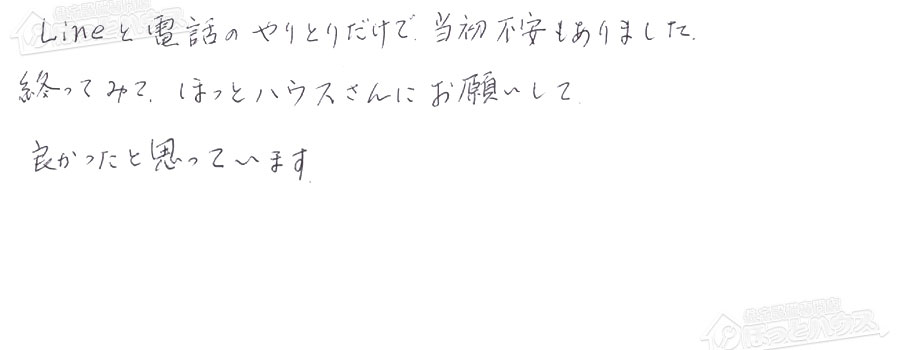 Lineと電話のやりとりだけで、当初不安もありました。
終ってみて、ほっとハウスさんにお願いして
良かったと思っています。
ほっとハウス